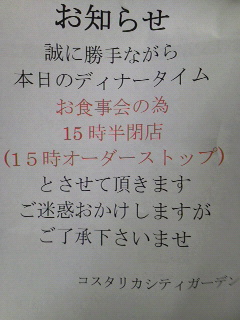 お知らせ
誠に勝手ながら
本日のディナータイム
お食事会の為
15時半閉店
(15時オーダーストップ)
とさせて頂きます
ご迷惑おかけしますが
ご了承下さいませ
コスタリカシティガーデン